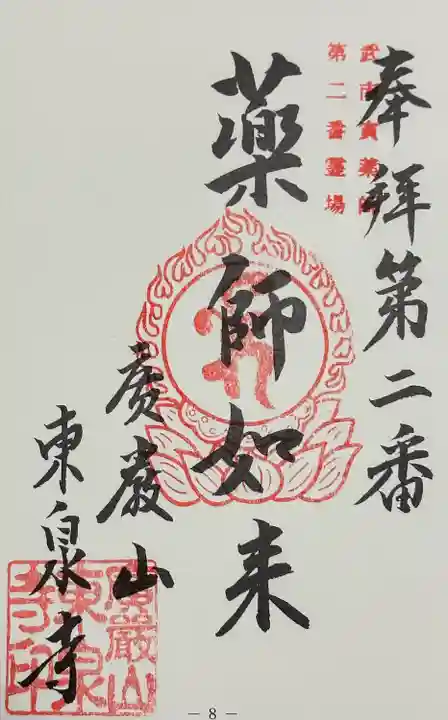 奉拝第二番
武南寅薬師
第二番霊場
薬師如来
廣巌山
東泉寺
廣巖山
東泉
寺印
— 8 —